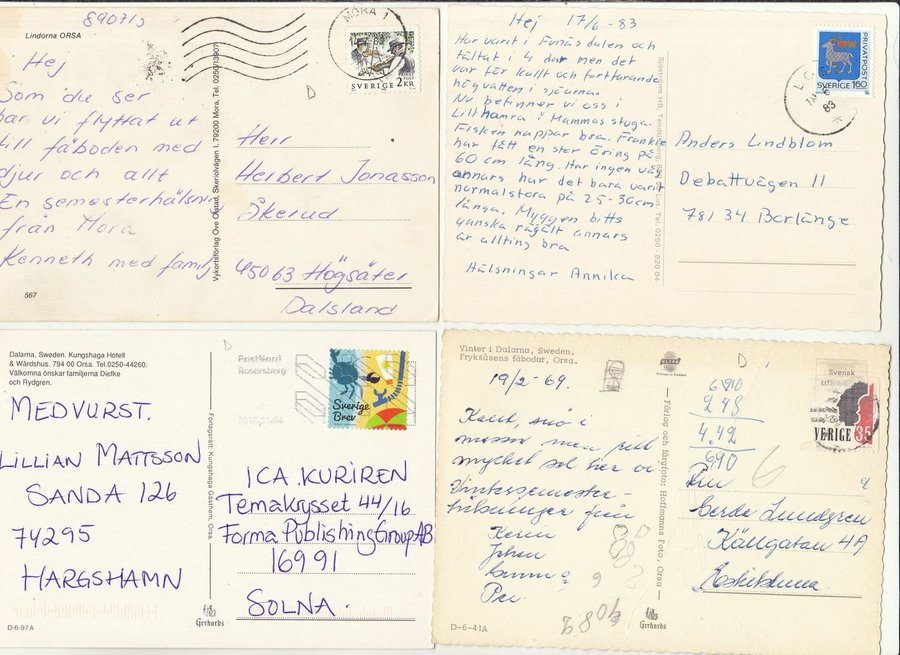 890715
Lindorna ORSA
MORA 1
SVERIGE 2KR
Hej
Som du ser
har vi flyttat ut
till fäboden med
djur och allt
En semesterhälsning
från Mora
Kenneth med familj
567
Vykortsförlag Ove Ofstad, Skeriolvägen 1, 79200 Mora, Tel. 0250/13907
Herr
Herbert Jonasson
Åkerud
45063 Högsäter
Dalsland
Hej 17/6 - 83
Har varit i Funäsdalen och
tältat i 4 dar men det
var för kallt och fortfarande
högvatten i sjöarna
Nu befinner vi oss i
Lillhamra i Mammas stuga.
Fisken nappar bra. Frankie
har fått en stor öring på
60 cm lång. Har ingen våg
annars har det bara varit
normalstora på 25-30cm
långa. Myggen bitts
ganska rågält annars
är allting bra
Hälsningar Annika
PRIVATPOST
SVERIGE 160
83
Anders Lindblom
Debattvägen 11
781 34 Borlänge
Dalarna, Sweden. Kungshaga Hotell
& Wärdshus. 794 00 Orsa. Tel.0250-44260.
Välkomna önskar familjerna Dielfke
och Rydgren.
PostNord
Rosersberg
Sverige
Brev
MEDVURST.
LILLIAN MATTSSON
SANDA 126
74295
HARGSHAMN
Förlagsrätt: Kungshaga Gästhem, Orsa.
ICA KURIREN
Temakrysset 44/16
Forma Publishing Group AB
169 91
SOLNA.
D-6-97A
Gerhards
Vinter i Dalarna, Sweden.
Fryksåsens fäbodar, Orsa.
ULTRA
Printed in Sweden
D
19/2-69.
Svensk
SVERIGE 35
248
4.42
690
6
snö i
massor men
mycket sol här
Vintersemester-
från
Johan
Per
— Förlag och färgfoto: Hoffmanns Foto, Orsa —
Gerda Lundgren
Källgatan 4A
Eskilstuna
D-6-41A
Gerhards